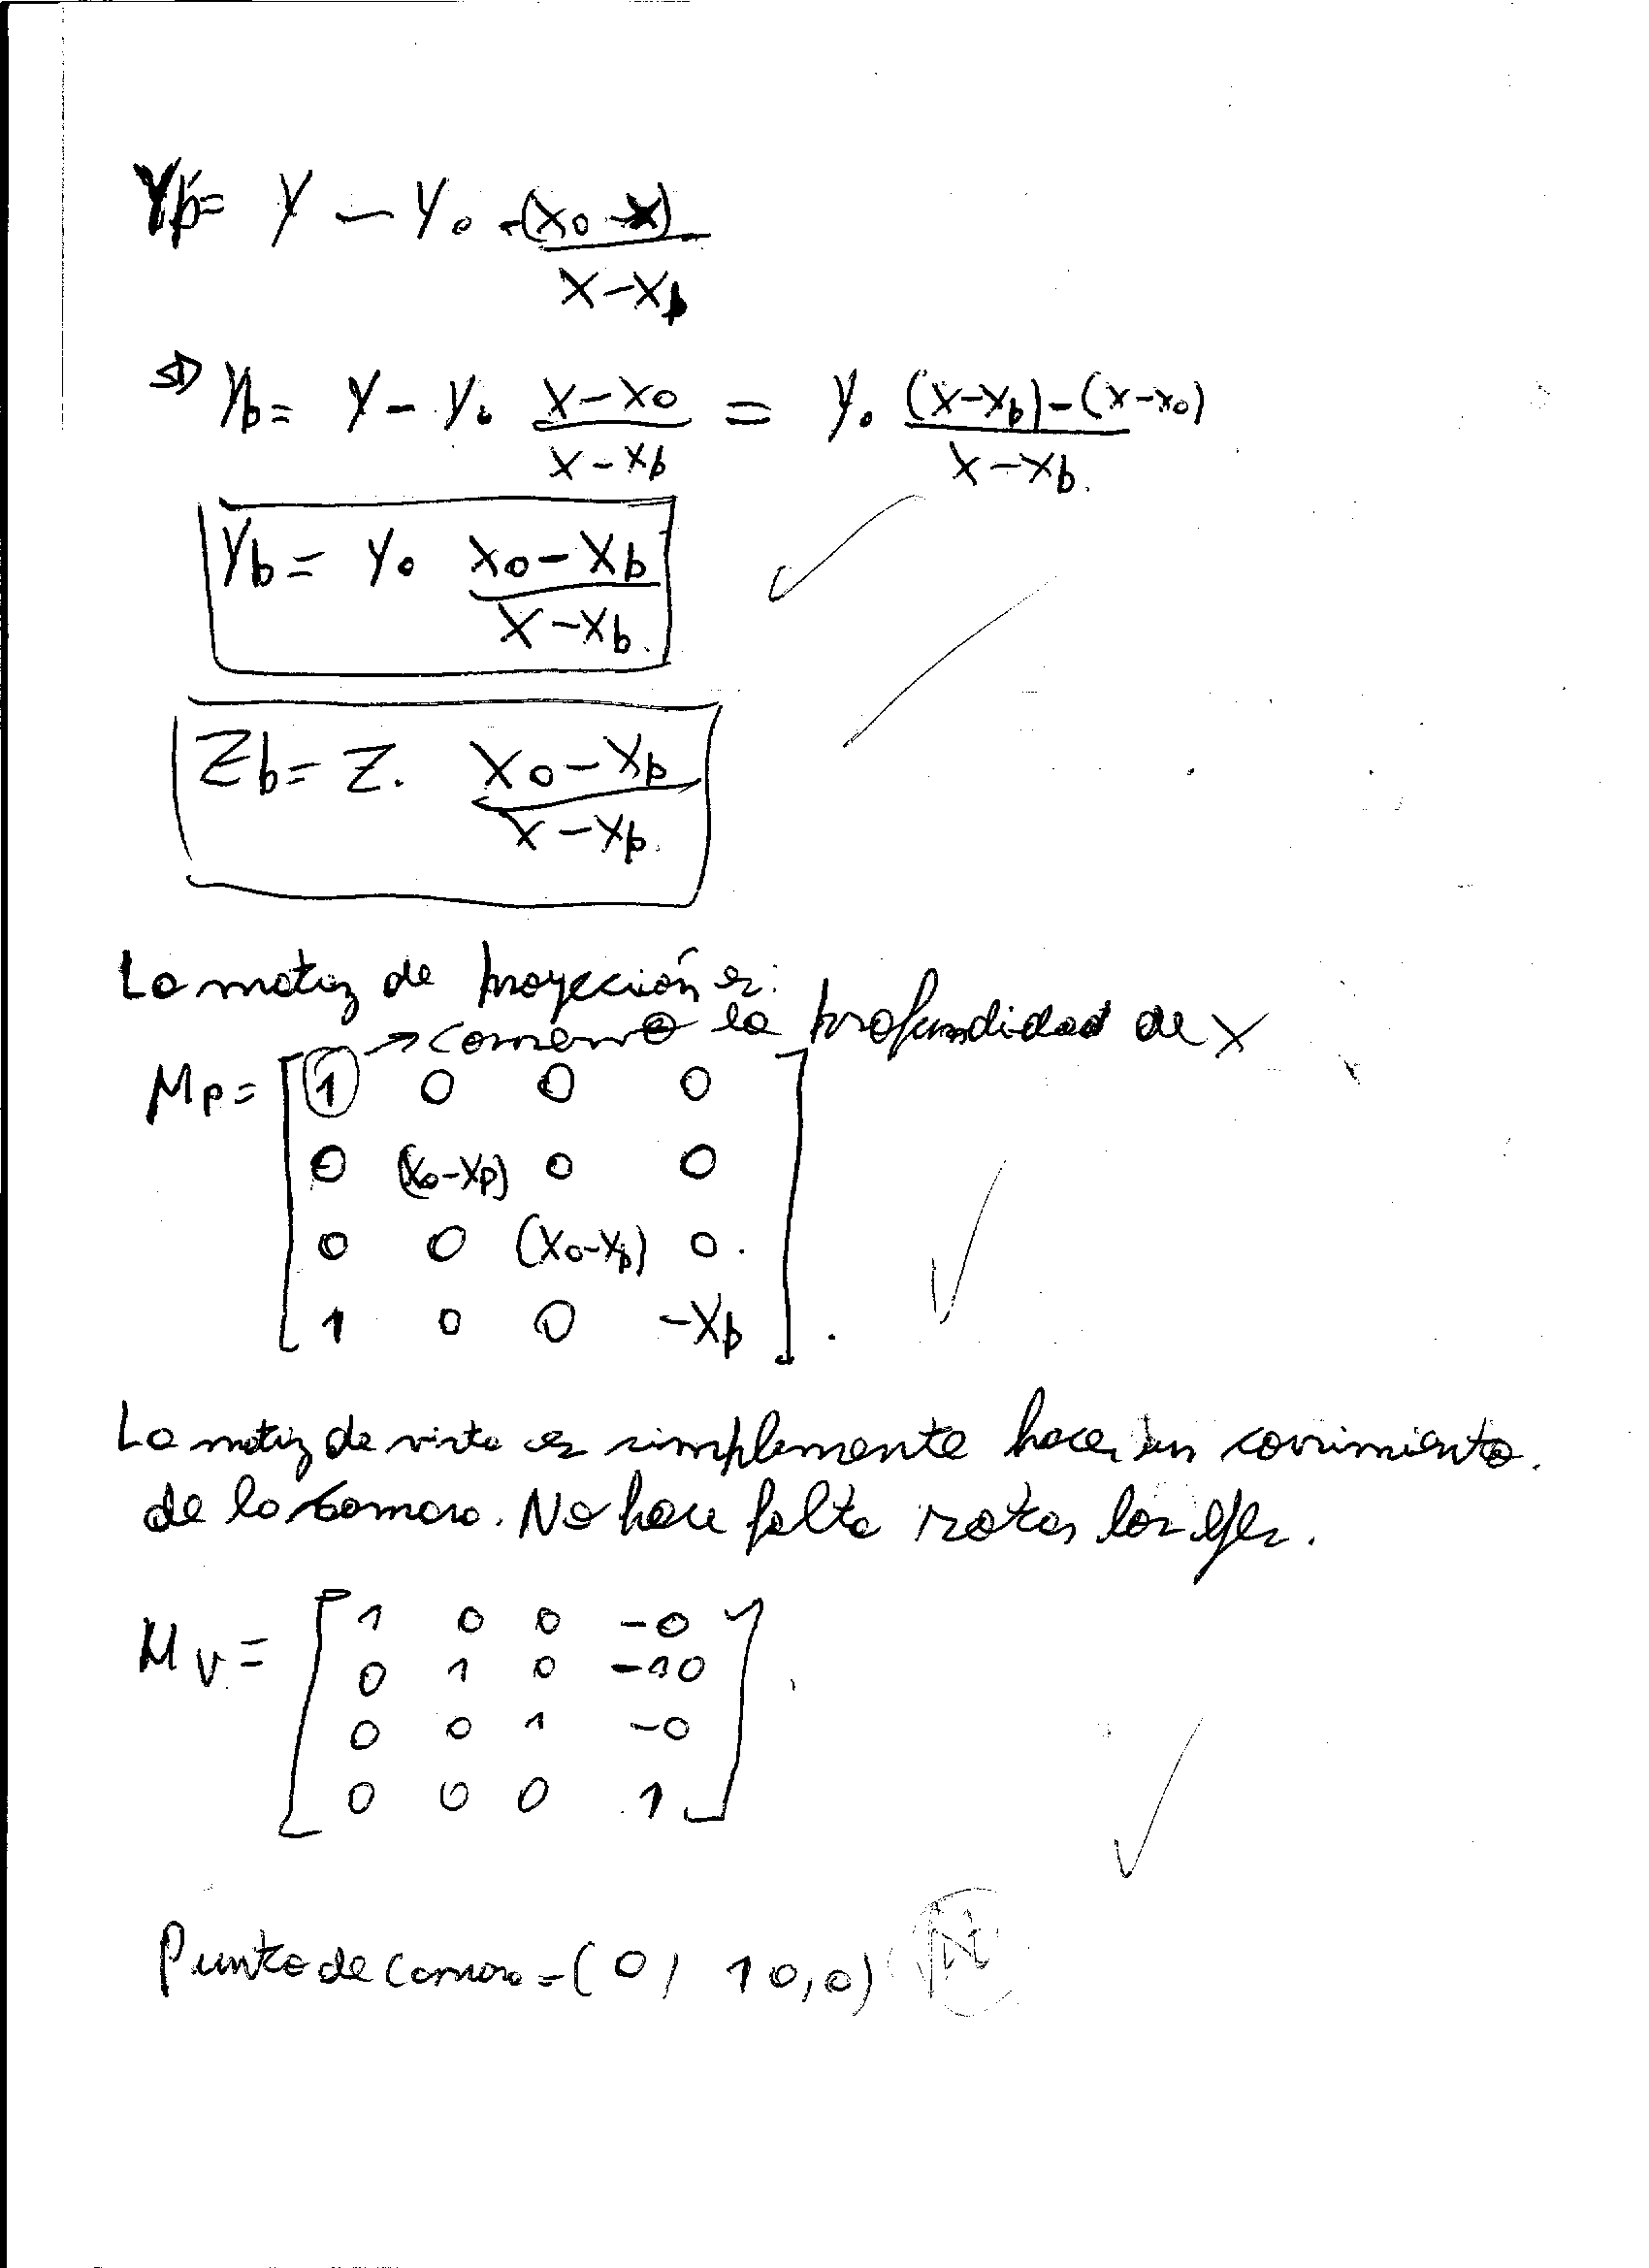 Yp = Y - Y. -(x0 - x) / x - xp
⇒ Yp = Y - Y. x - x0 / x - xp = Y. (x - xp) - (x - x0) / x - xp.
Yp = Y. x0 - xp / x - xp.
Zp = Z. x0 - xp / x - xp.
La matriz de proyección es:
→ conservo la profundidad de x
Mp = [ 1 0 0 0
0 (x0-xp) 0 0
0 0 (x0-xp) 0.
1 0 0 -xp ].
La matriz de vista es simplemente hacer un corrimiento.
de la camara. No hace falta rotar los ejes.
Mv = [ 1 0 0 -0
0 1 0 -10
0 0 1 -0
0 0 0 1 ]
Punto de camara = (0, 10, 0)